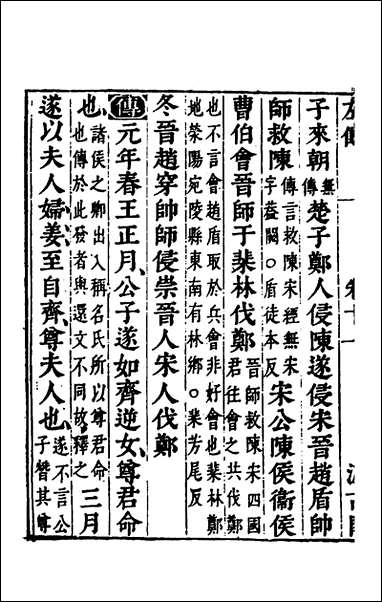 子來朝無傳楚子鄭人侵陳遂侵宋晉趙盾帥
師救陳傳言救陳宋經無宋字蓋闕○盾徒本反宋公陳侯衞侯
曹伯會晉師于棐林伐鄭晉師救陳宋四國君往會之共伐鄭
也不言會趙盾取於兵會非好會也棐林鄭地滎陽宛陵縣東南有林鄉○棐芳尾反
冬晉趙穿帥師侵崇晉人宋人伐鄭
傳元年春王正月公子遂如齊逆女尊君命
也諸侯之卿出入稱名氏所以尊君命也傳於此發者與還文不同故釋之三月
遂以夫人婦姜至自齊尊夫人也遂不言公子替其尊